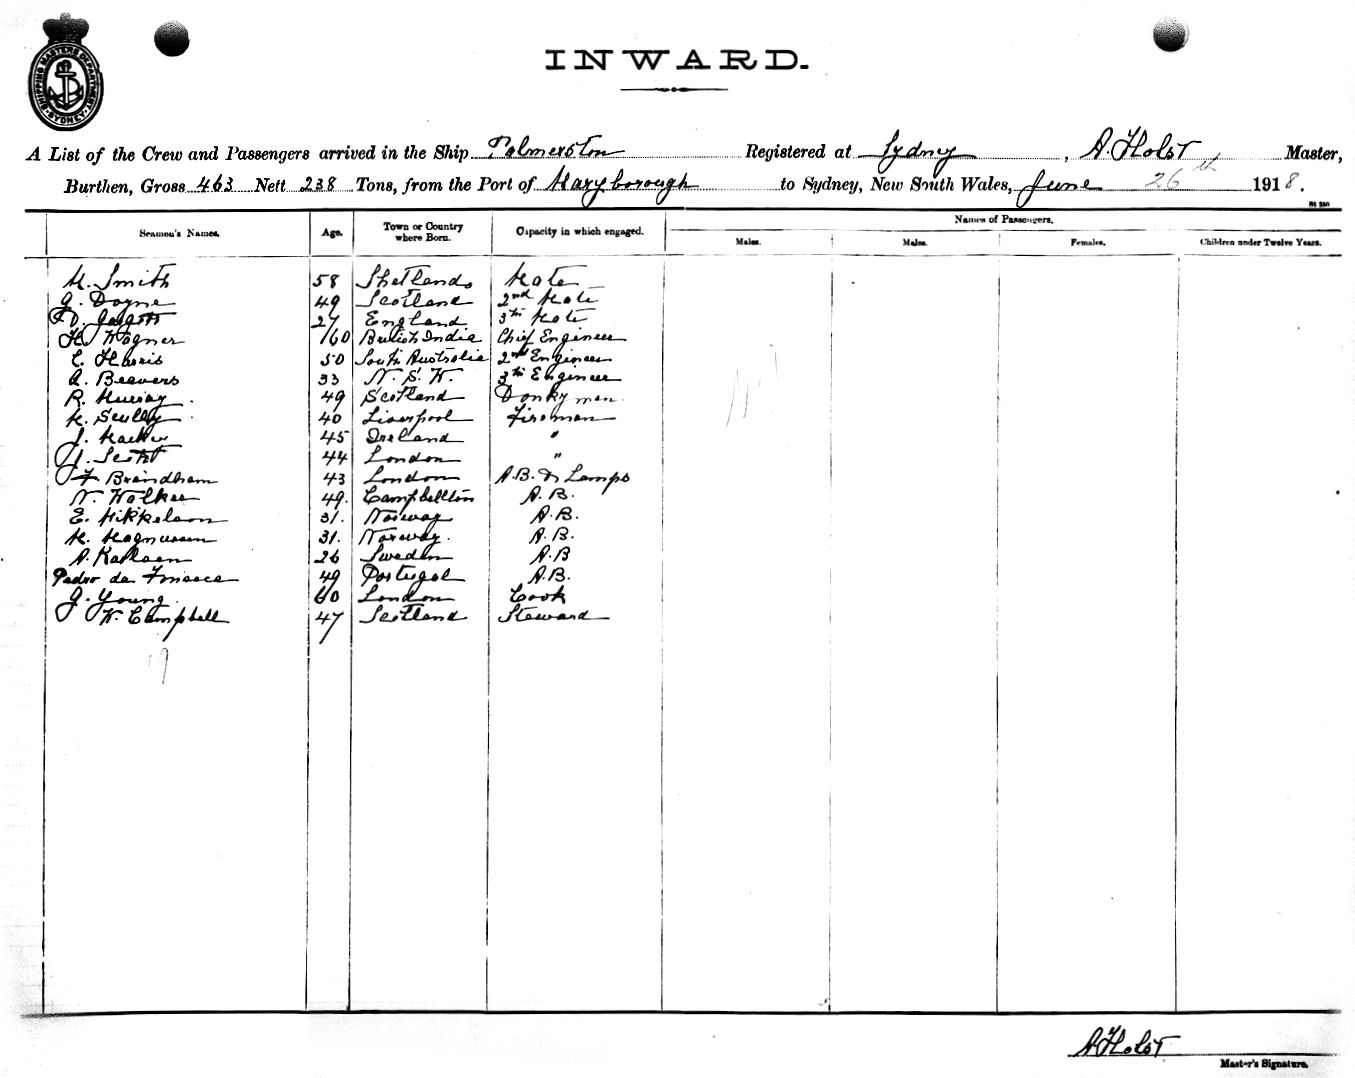 SHIPPING MASTERS DEPARTMENT SYDNEY
INWARD.
A List of the Crew and Passengers arrived in the Ship Palmerston Registered at Sydney, A. Holst Master,
Burthen, Gross 463 Nett 238 Tons, from the Port of Maryborough to Sydney, New South Wales, June 26th 1918.
Names of Passengers.
Seamen's Names. Age. Town or Country where Born. Capacity in which engaged. Males. Males. Females. Children under Twelve Years.
M. Smith 58 Shetlands Mate
J. Doyne 49 Scotland 2nd Mate
D. 27 England 3rd Mate
H. Wagner 60 British India Chief Engineer
C. Harris 50 South Australia 2nd Engineer
A. Beavers 33 N. S. W. 3rd Engineer
R. Murray 49 Scotland Donkyman
M. Scully 40 Liverpool Fireman
J. 45 Ireland "
J. Scott 44 London "
F. Brindham 43 London A.B. & Lamps
N. Walker 49. Campbellton A.B.
E. Mikkelson 31. Norway A.B.
M. Magnussen 31. Norway. A.B.
A. Karlsen 26 Sweden A.B
Pedro da Fonseca 49 Portugal A.B.
J. Young. 60 London Cook
W. Campbell 47 Scotland Steward
A Holst
Master's Signature.